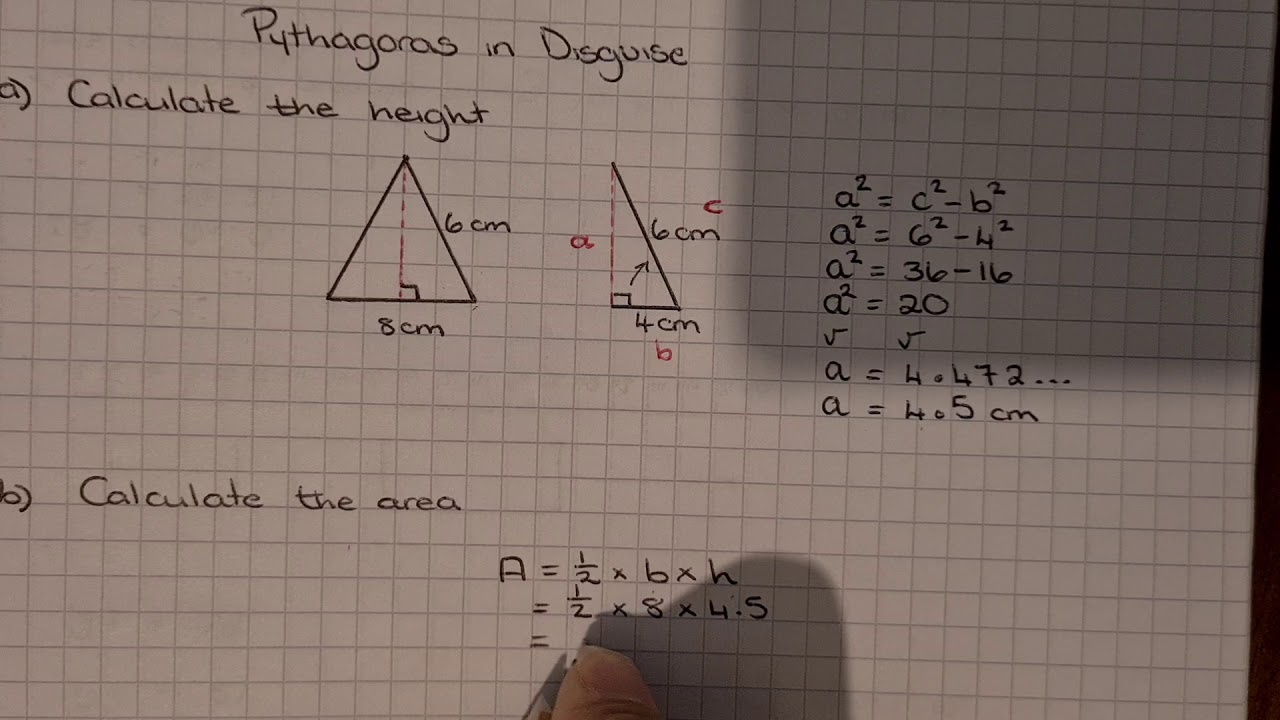 Pythagoras in Disguise
a) Calculate the height
6cm
8cm
a
c
6cm
4cm
b
a² = c² - b²
a² = 6² - 4²
a² = 36 - 16
a² = 20
√ √
a = 4.472...
a = 4.5 cm
b) Calculate the area
A = ½ × b × h
= ½ × 8 × 4.5
=